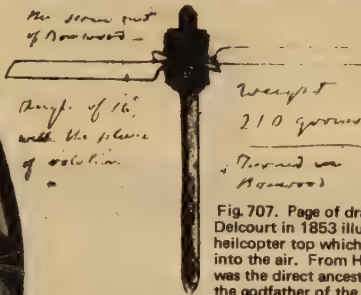 of Boxwood —
Angle of 16°
with the plane
of rotation.
weight
210 grains
Turned in
Boxwood
Fig. 707. Page of dra
Delcourt in 1853 illu
heilcopter top which
into the air. From H
was the direct ancest
the godfather of the